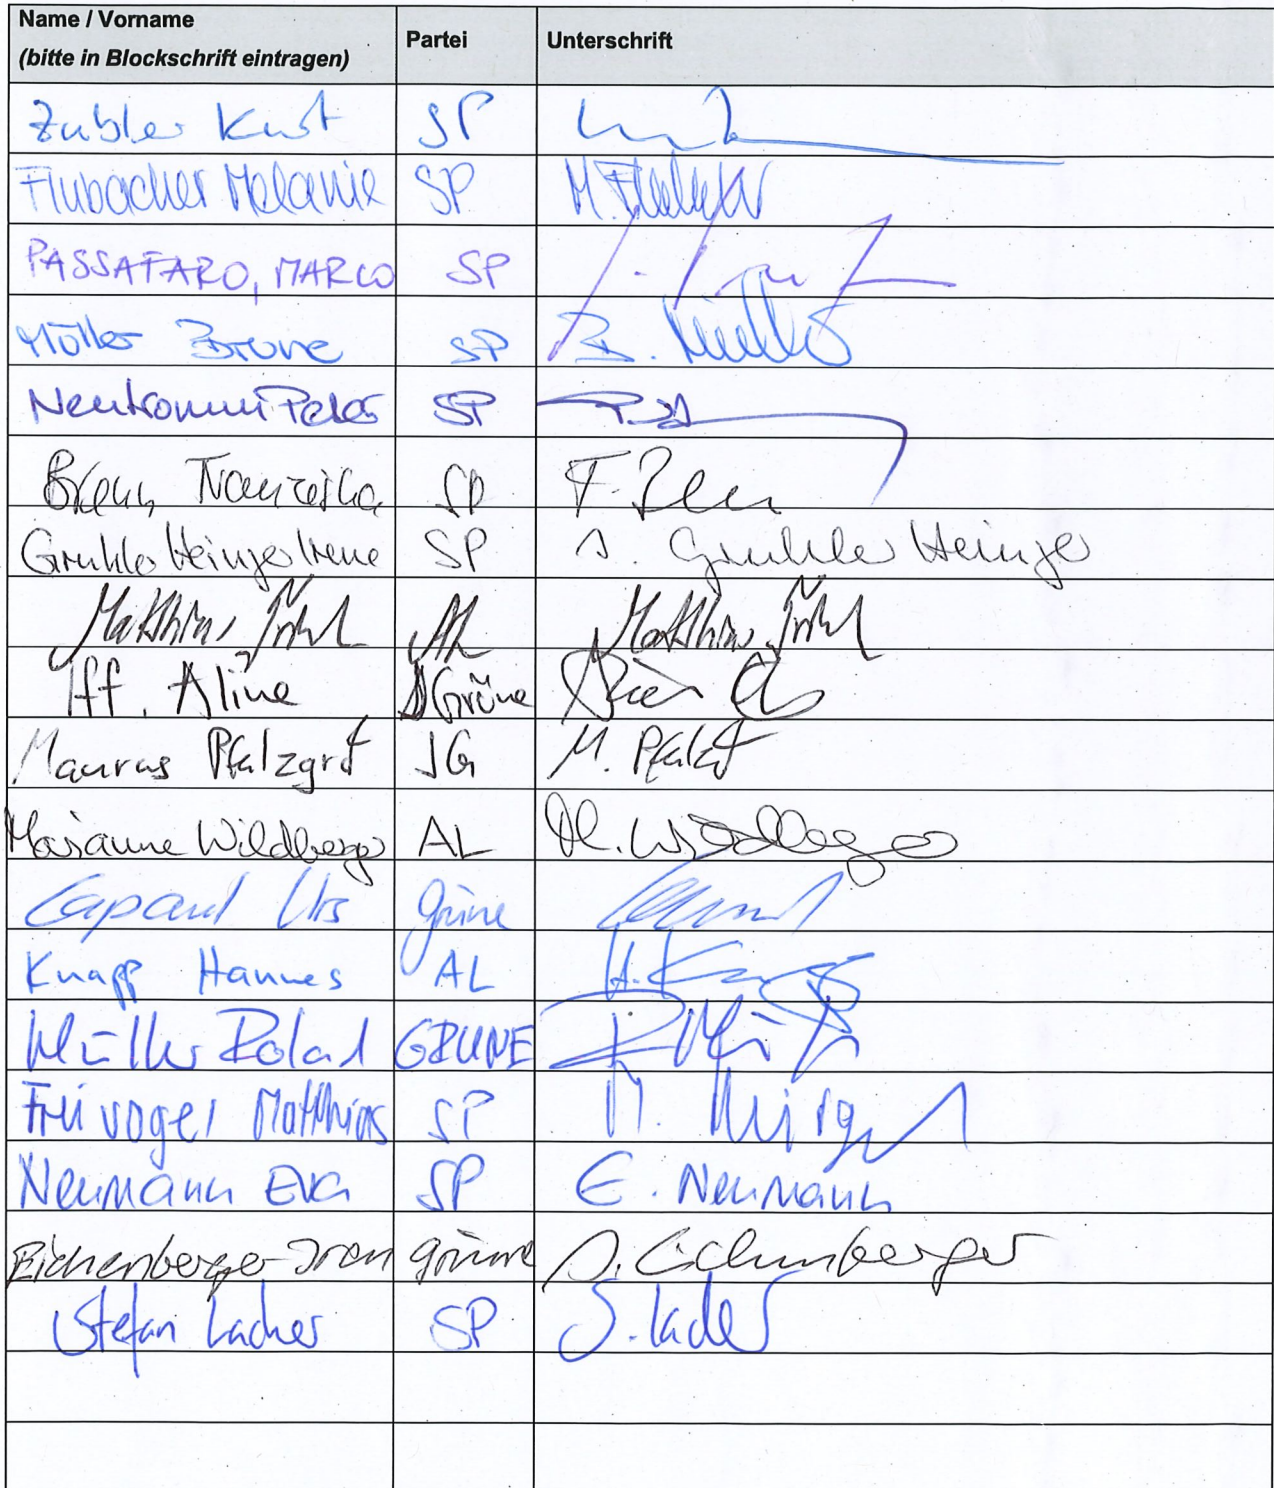 Name / Vorname
(bitte in Blockschrift eintragen)
Partei
Unterschrift
Zubler Kurt SP
Flubacher Melanie SP M. Flubacher
PASSAFARO, MARCO SP
Müller Irene SP
Neukomm Peter SP
Brenn Franziska SP F. Brenn
Gruhler Heinzer Irene SP I. Gruhler Heinzer
Matthias Frick AL Matthias Frick
Iff, Aline Grüne
Maurus Pfalzgraf JG M. Pfalzgraf
Marianne Wildberger AL M. Wildberger
Capaul Urs Grüne
Knapp Hannes AL H. Knapp
Müller Roland GRÜNE R. Müller
Freivogel Matthias SP
Neumann Eva SP E. Neumann
Eichenberger Iren Grüne I. Eichenberger
Stefan Lacher SP S. Lacher